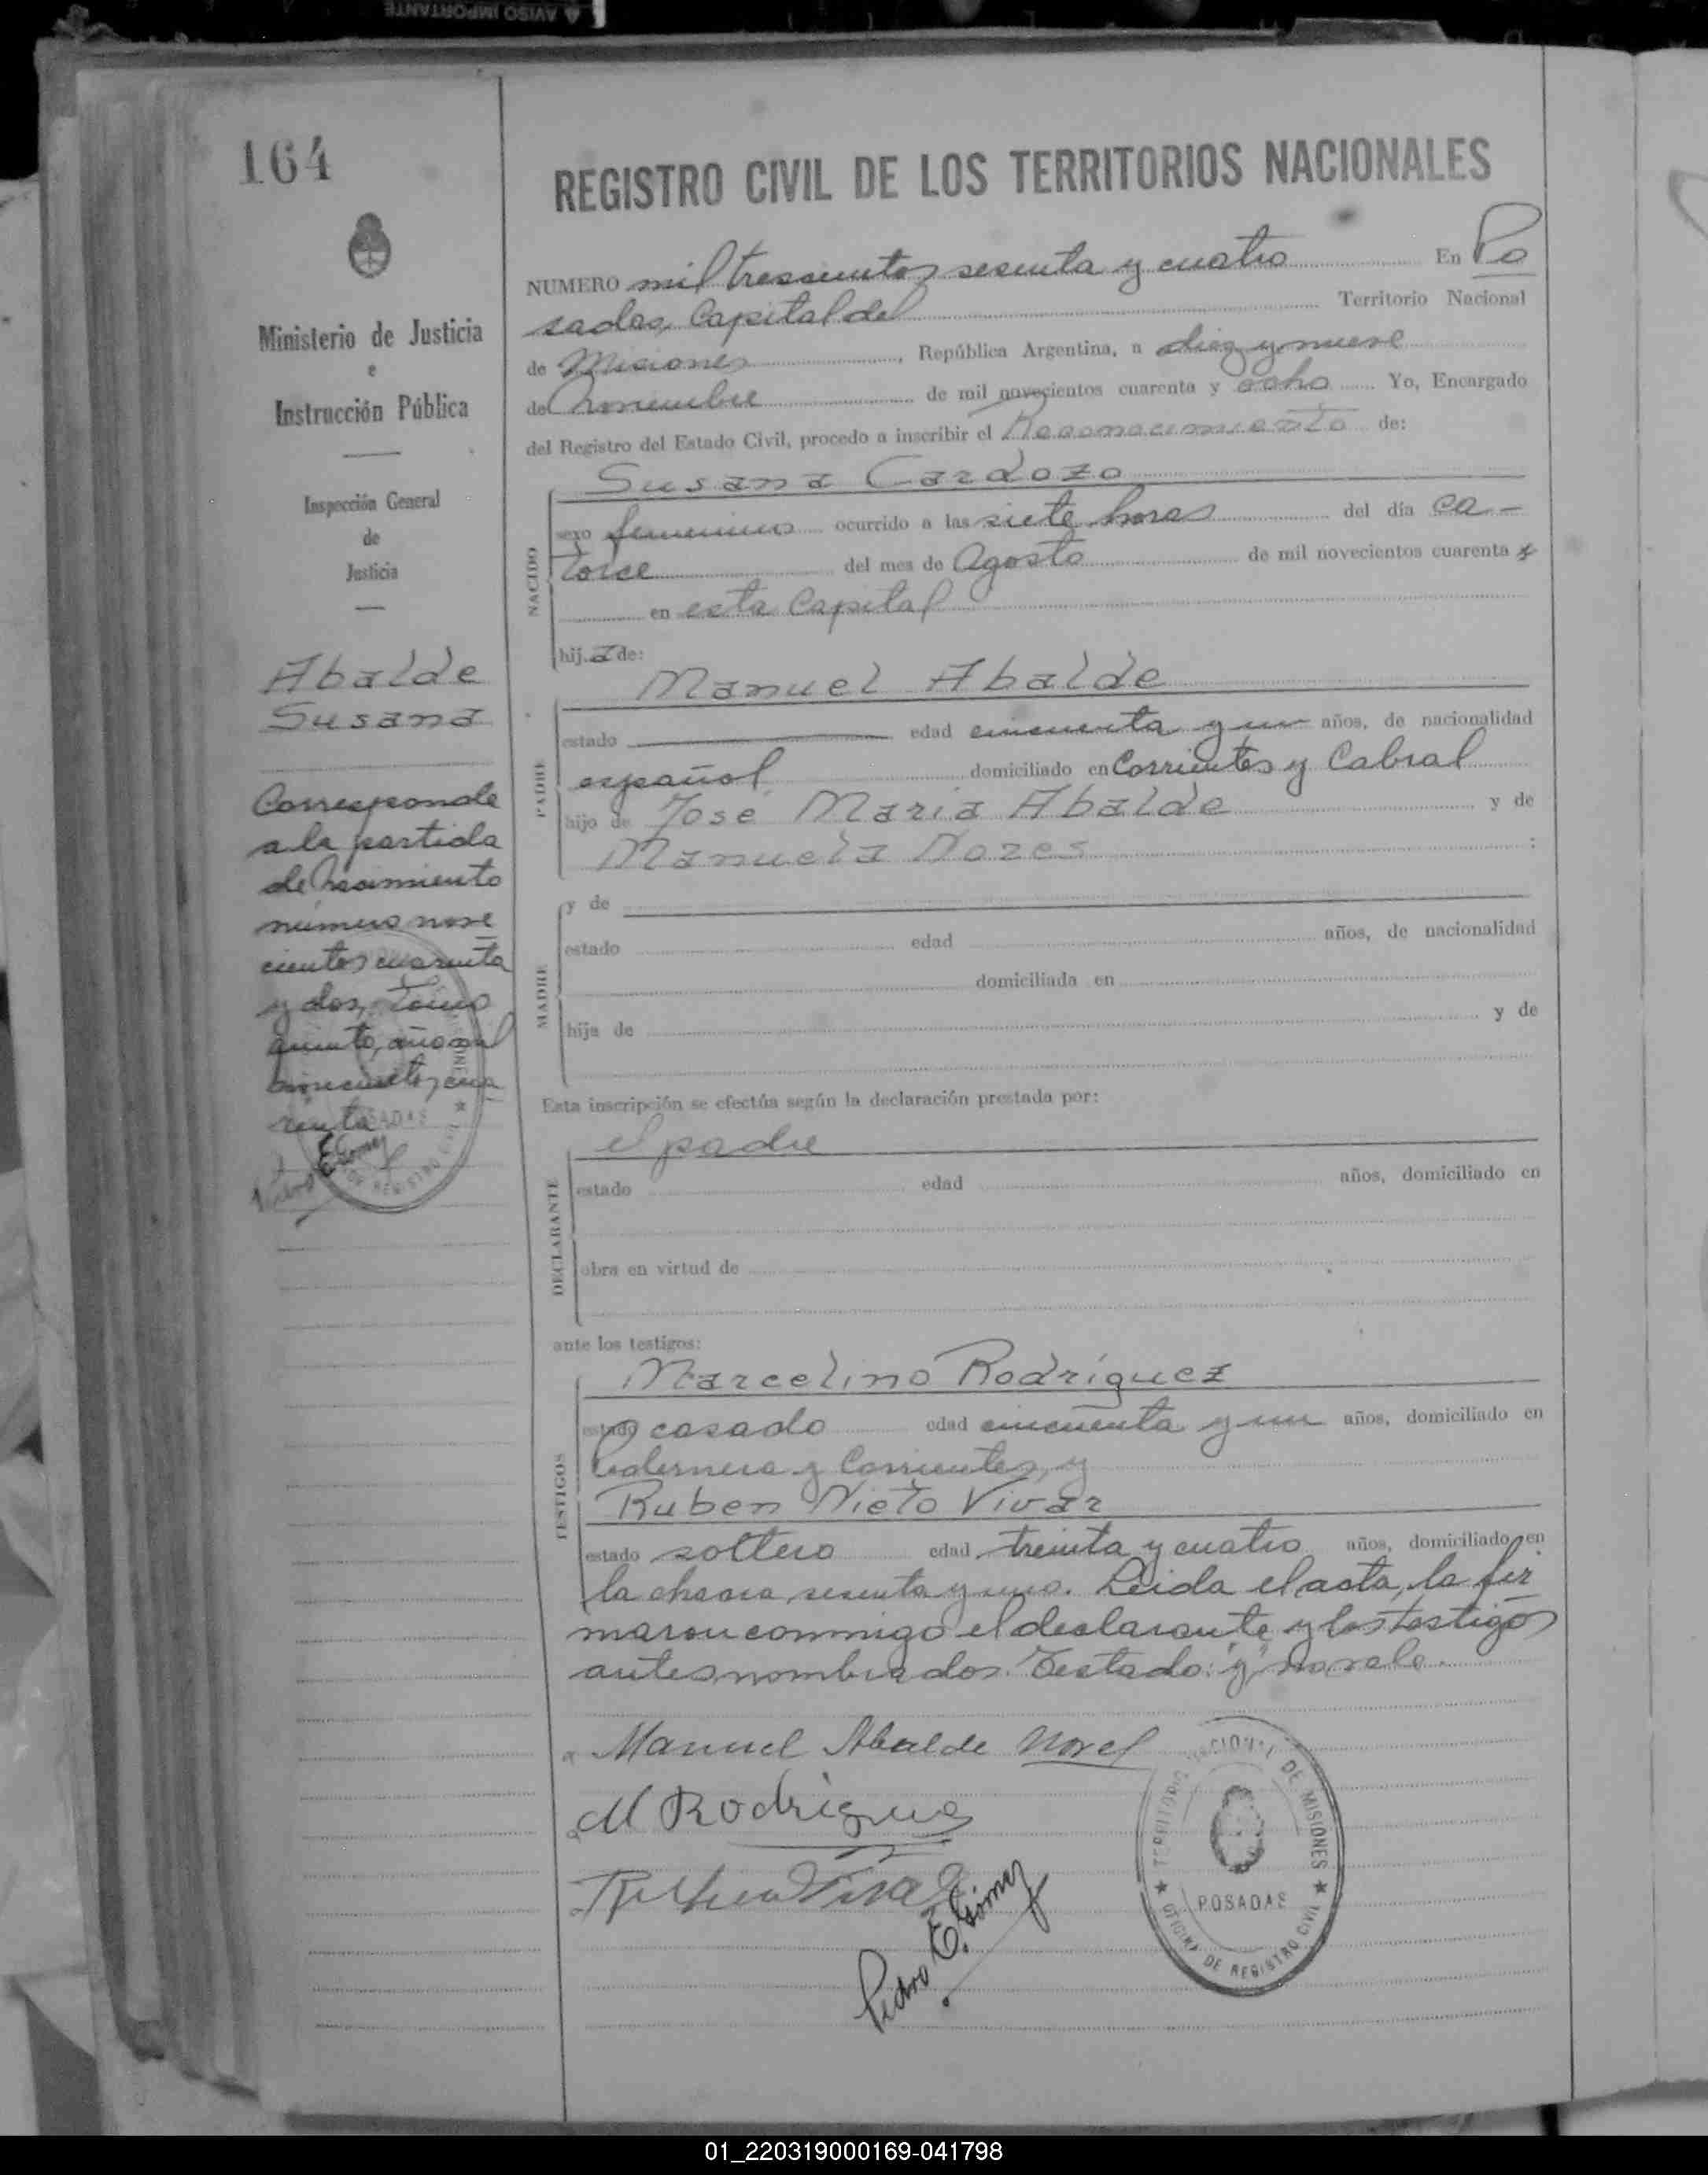 AVISO IMPORTANTE
164
REGISTRO CIVIL DE LOS TERRITORIOS NACIONALES
Ministerio de Justicia
e
Instrucción Pública
Inspección General
de
Justicia
Abalde
Susana
Corresponde
a la partida
de Nacimiento
número nove
cientos cuarenta
y dos, Tomo
quinto, año mil
novecientos cua
renta
Pedro E. Gómez
NUMERO mil trescientos sesenta y cuatro En Po
sadas, Capital del Territorio Nacional
de Misiones, República Argentina, a diez y nueve
de Noviembre de mil novecientos cuarenta y ocho Yo, Encargado
del Registro del Estado Civil, procedo a inscribir el Reconocimiento de:
Susana Cardozo
NACIDO
sexo femenino ocurrido a las siete horas del día ca-
torce del mes de Agosto de mil novecientos cuarenta
en esta Capital
hija de:
Manuel Abalde
PADRE
estado edad cincuenta y un años, de nacionalidad
español domiciliado en Corrientes y Cabral
hijo de José María Abalde y de
Manuela Nores :
MADRE
y de
estado edad años, de nacionalidad
domiciliada en
hija de y de
Esta inscripción se efectúa según la declaración prestada por:
el padre
DECLARANTE
estado edad años, domiciliado en
obra en virtud de
ante los testigos:
Marcelino Rodríguez
TESTIGOS
estado casado edad cincuenta y un años, domiciliado en
Pedernera y Corrientes, y
Ruben Nieto Vivar
estado soltero edad treinta y cuatro años, domiciliado en
la chacra sesenta y uno. Leida el acta, la fir
maron conmigo el declarante y los testigos
antes nombrados. Testado: "y" no vale.
Manuel Abalde Nores
M Rodriguez
Pedro E. Gómez
TERRITORIO NACIONAL DE MISIONES
POSADAS
OFICINA DE REGISTRO CIVIL
01_220319000169-041798